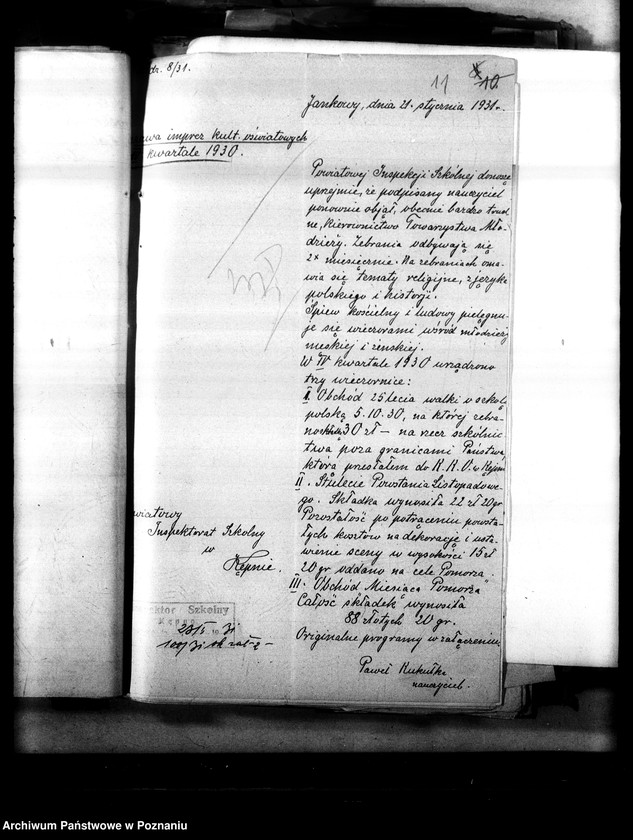 dz. 8/31.
11 10.
Jankowy, dnia 21. stycznia 1931r.
imprez kult. oświatowych
kwartale 1930.
Powiatowej Inspekcji Szkolnej donoszę
uprzejmie, że podpisany nauczyciel
ponownie objął, obecnie bardzo trud
ne, kierownictwo Towarzystwa Mło-
dzieży. Zebrania odbywają się
2x miesięcznie. Na zebraniach oma-
wia się tematy religijne, z języka
polskiego i historji.
Śpiew kościelny i ludowy pielęgnu-
je się wieczorami wśród młodzieży
męskiej i żeńskiej.
W IV kwartale 1930 urządzono
trzy wieczornice:
I. Obchód 25 lecia walki o szkołę
polską 5.10.30, na której zebra-
no 30 zł — na rzecz szkolnic
twa poza granicami Państwa,
którą przesłałem do K.K.O. w Kępnie
II. Stulecie Powstania Listopadowe-
go. Składka wynosiła 22 zł 20 gr
Pozostałość po potrąceniu powsta-
łych kosztów na dekorację i usta-
wienie sceny w wysokości 15 zł
20 gr oddano na cele Pomorza.
III. Obchód Miesiąca Pomorza
Całość składek wynosiła
88 złotych 20 gr.
Oryginalne programy w załączeniu.
Paweł Kukułka
nauczyciel.
Inspektorat Szkolny
w
Kępnie.
Szkolny
Kępno
23/I 31
100/31
Archiwum Państwowe w Poznaniu